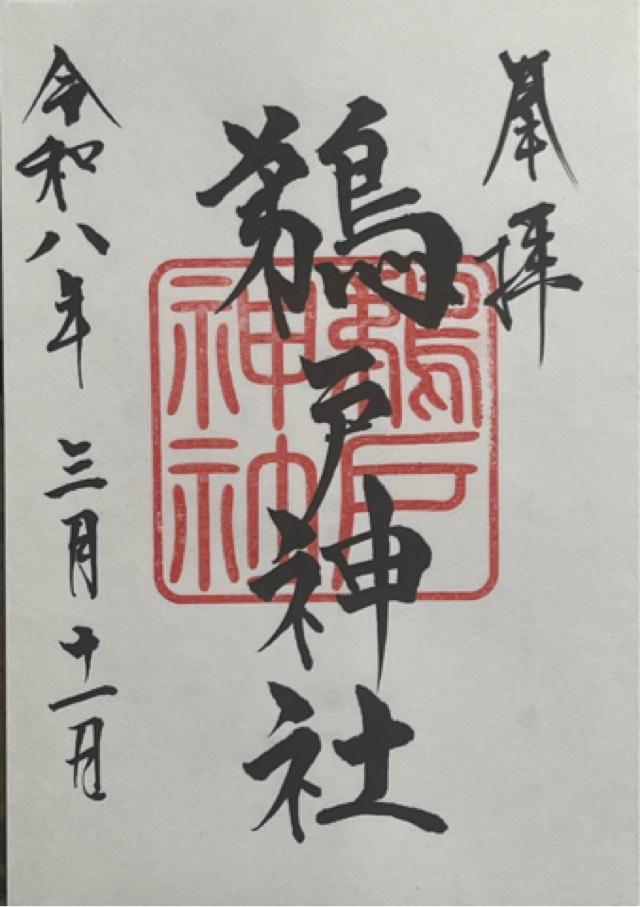 奉拝
鵜戸神社
鵜戸
神社
令和八年三月十一日